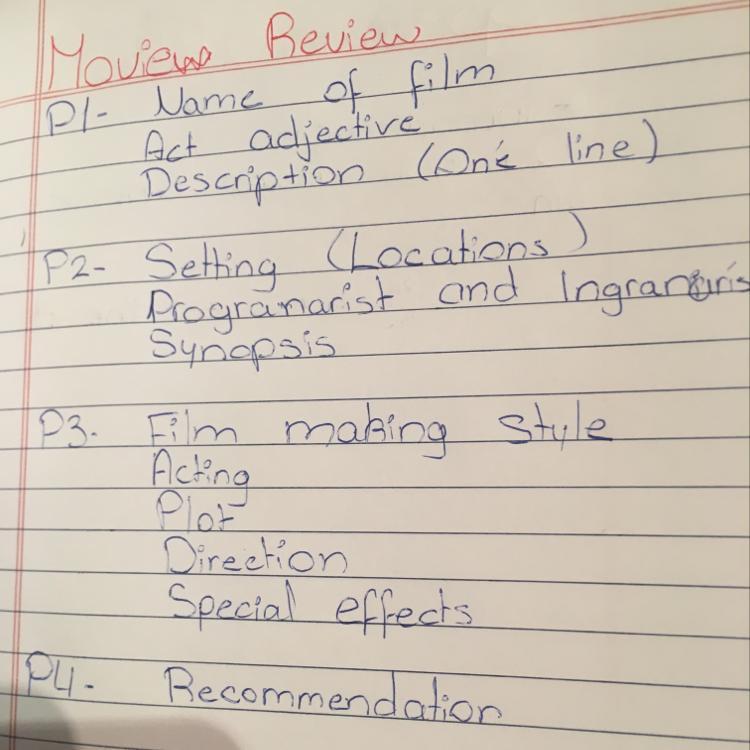 Moview Review
P1- Name of film
Act adjective
Description (One line)
P2- Setting (Locations)
Programarist and
Synopsis
P3. Film making style
Acting
Plot
Direction
Special effects
P4- Recommendation